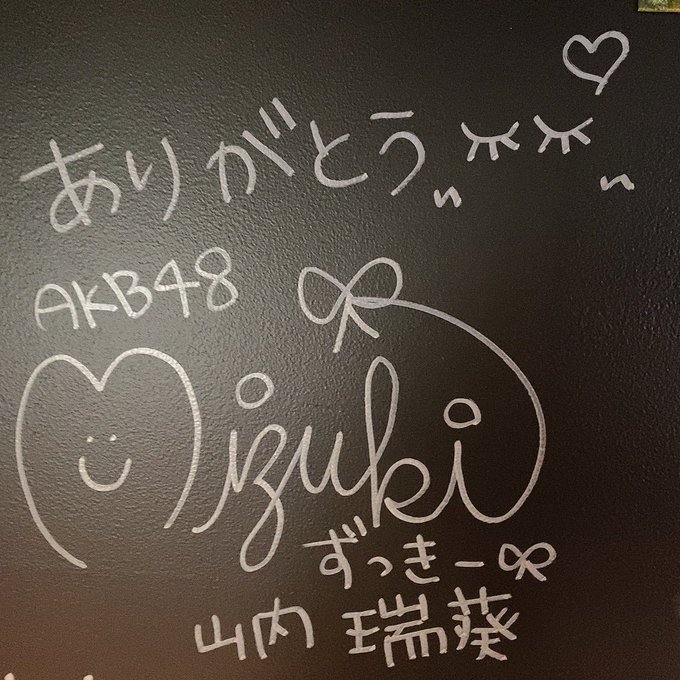 ありがとう
AKB48
Mizuki
ずっきー
山内 瑞葵